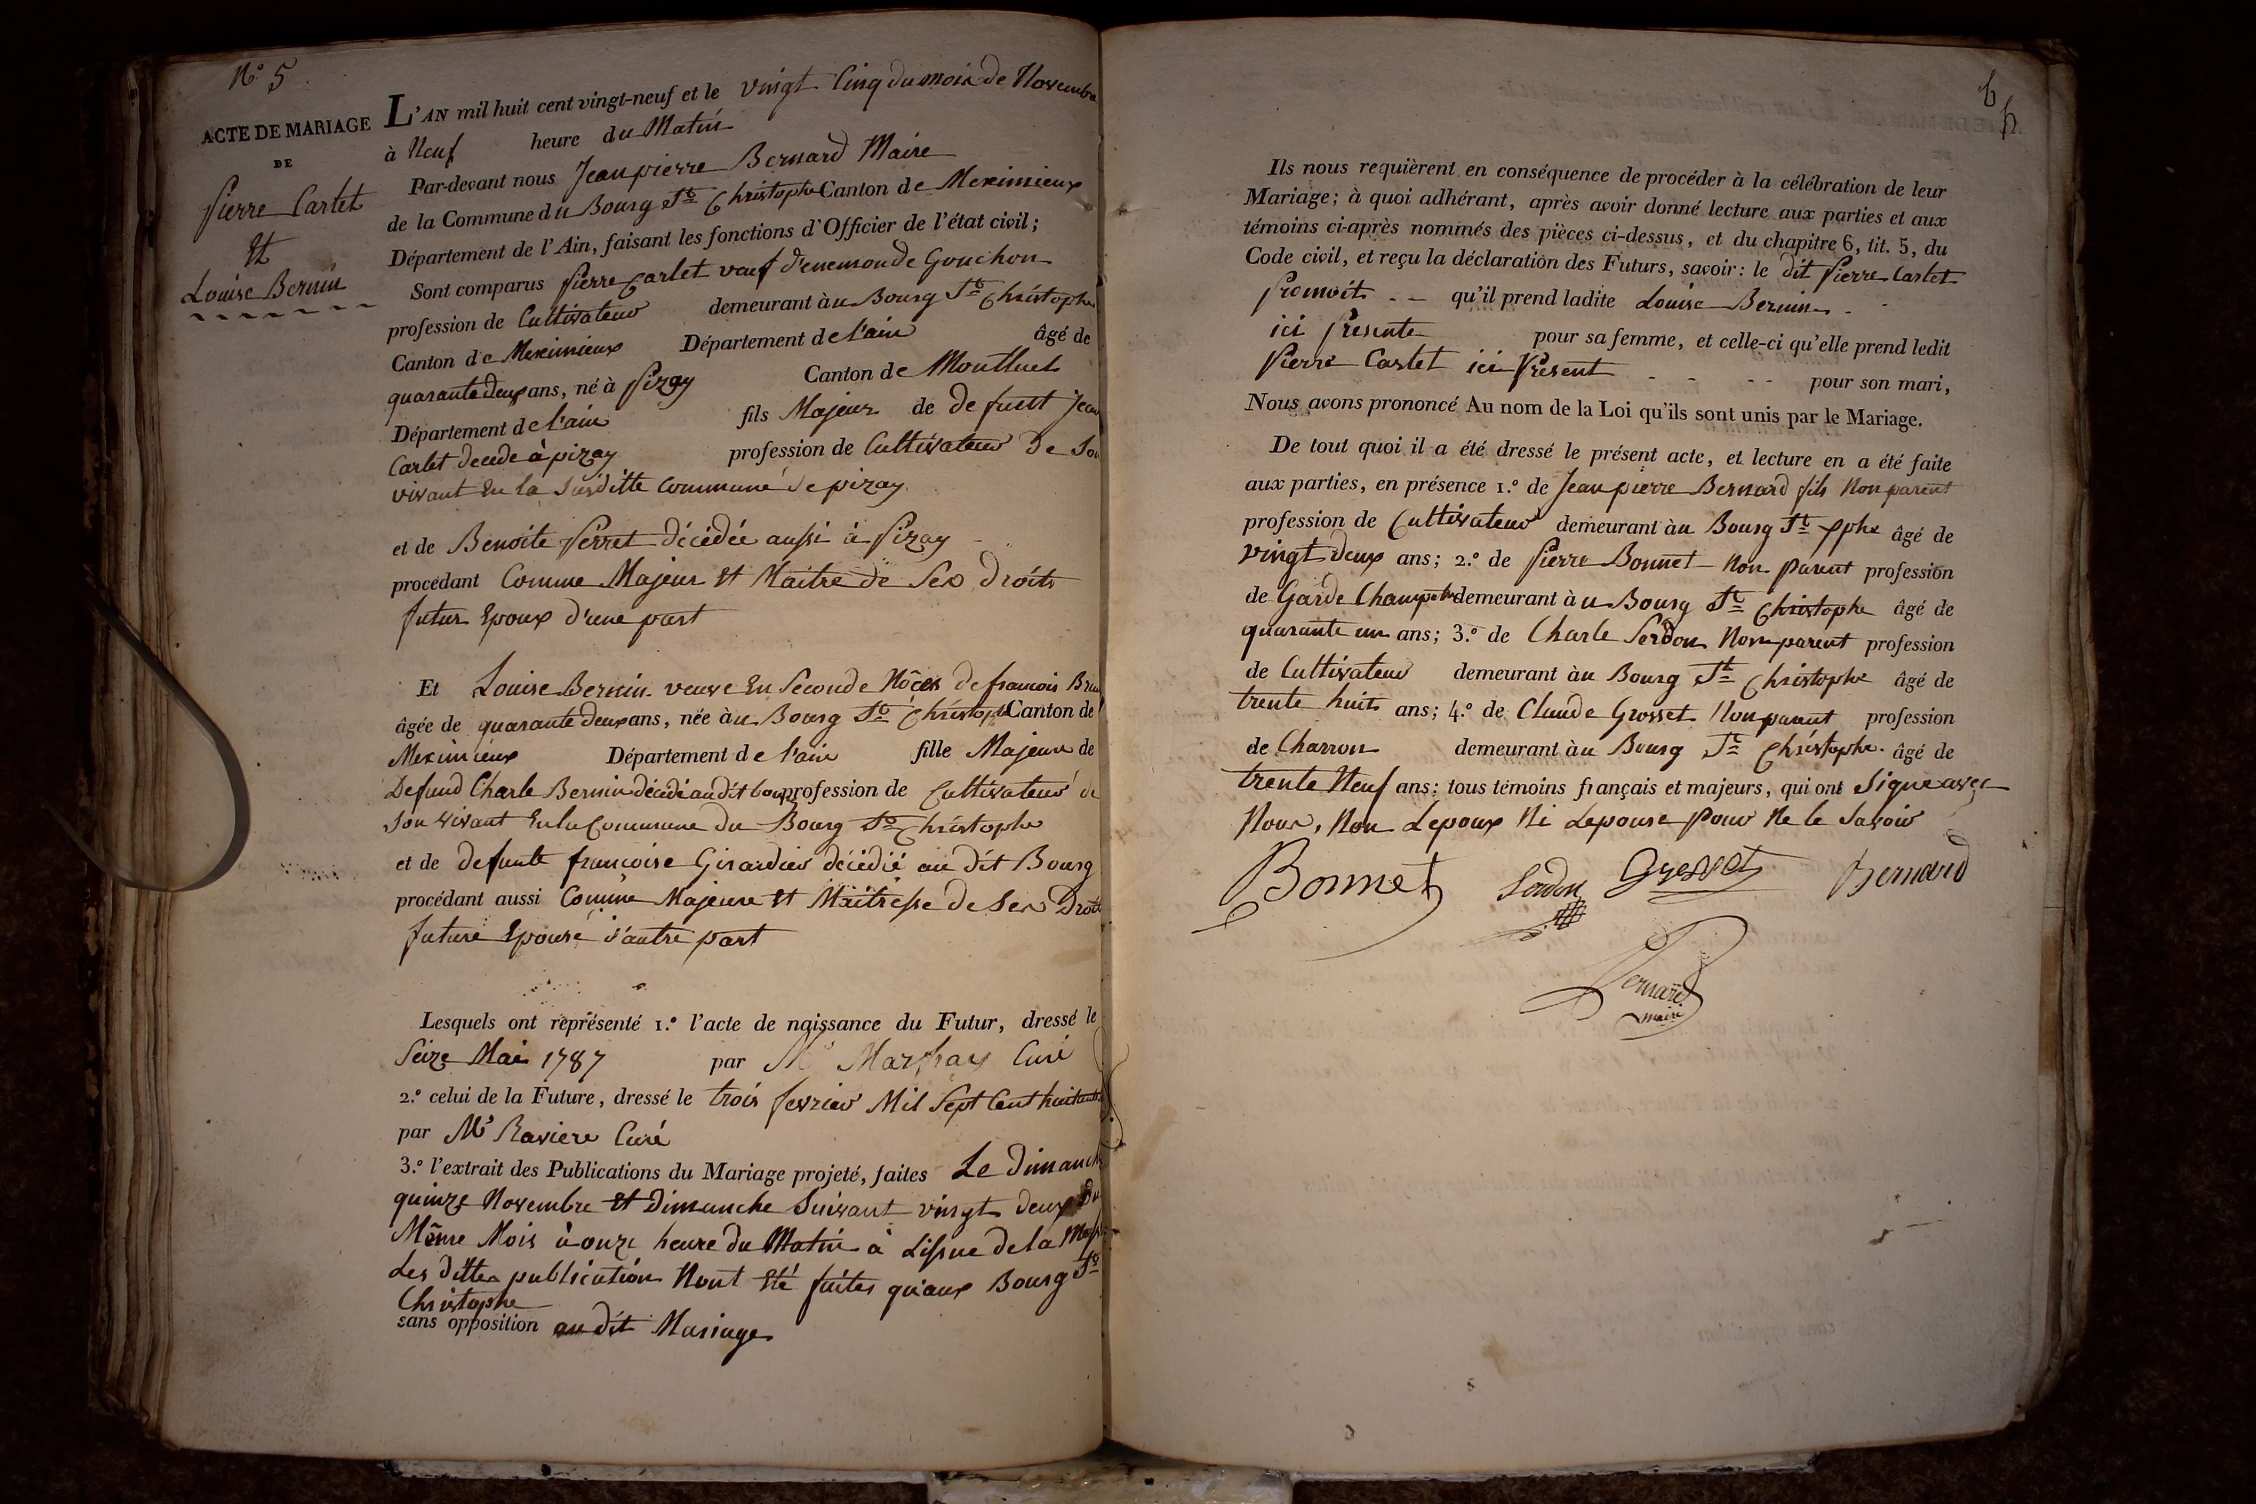 N.o 5
ACTE DE MARIAGE
DE
Pierre Carlet
Et
Louise Bernin
L'AN mil huit cent vingt-neuf et le vingt Cinq du mois de Novembre
à Neuf heure du Matin
Par-devant nous Jean pierre Bernard Maire
de la Commune du Bourg St Christophe Canton de Meximieux
Département de l'Ain, faisant les fonctions d'Officier de l'état civil;
Sont comparus Pierre Carlet veuf d'enemonde Gouchon
profession de Cultivateur demeurant àu Bourg St Christophe
Canton de Meximieux Département de l'ain âgé de
quarante deux ans, né à Pizay Canton de Montluel
Département de l'ain fils Majeur de defunt Jean
Carlet decede à pizay profession de Cultivateur De Son
vivant En la Susditte Commune de pizay
et de Benoite Perret décédée aussi à Pizay
procédant Comme Majeur et Maitre de Ses Droits
futur Epoux d'une part
Et Louise Bernin veuve En Seconde Nôces de francois
âgée de quarante deux ans, née àu Bourg St Christophe Canton de
Meximieux Département de l'ain fille Majeure de
Defund Charle Bernin décédé au dit bourg profession de Cultivateur de
Son vivant En la Commune du Bourg St Christophe
et de defunte francoise Girardier décédié au dit Bourg
procédant aussi Comme Majeure et Maitresse de Ses Droits
future Epouse d'autre part
Lesquels ont représenté 1.° l'acte de naissance du Futur, dressé le
Seize Mai 1787 par Mr Curé
2.° celui de la Future, dressé le trois fevrier Mil Sept Cent
par Mr Raviere Curé
3.° l'extrait des Publications du Mariage projeté, faites Le Dimanche
quinze Novembre et Dimanche Suivant vingt deux Du
Même Mois à onze heure du Matin à Lissue de la Messe
Les dittes publication Nont Eté faites qu'aux Bourg St
Christophe
sans opposition au dit Mariage
6
Ils nous requièrent en conséquence de procéder à la célébration de leur
Mariage; à quoi adhérant, après avoir donné lecture aux parties et aux
témoins ci-après nommés des pièces ci-dessus, et du chapitre 6, tit. 5, du
Code civil, et reçu la déclaration des Futurs, savoir: le dit Pierre Carlet
Promoit - - qu'il prend ladite Louise Bernin -
ici Presente pour sa femme, et celle-ci qu'elle prend ledit
Pierre Carlet ici Present - - - - pour son mari,
Nous avons prononcé Au nom de la Loi qu'ils sont unis par le Mariage.
De tout quoi il a été dressé le présent acte, et lecture en a été faite
aux parties, en présence 1.° de Jean pierre Bernard fils Non parent
profession de Cultivateur demeurant àu Bourg St Xphe âgé de
vingt deux ans; 2.° de Pierre Bonnet Non Parent profession
de Garde Champetre demeurant àu Bourg St Christophe âgé de
quarante un ans; 3.° de Charle Serdon Non parent profession
de Cultivateur demeurant àu Bourg St Christophe âgé de
trente huit ans; 4.° de Claude Grosset Non parent profession
de Charron demeurant àu Bourg St Christophe. âgé de
trente Neuf ans; tous témoins français et majeurs, qui ont Signe avec
Nous, Non Lepoux Ni Lepouse pour Ne le Savoir
Bonnet Serdon Grosset Bernard
Bernard
maire